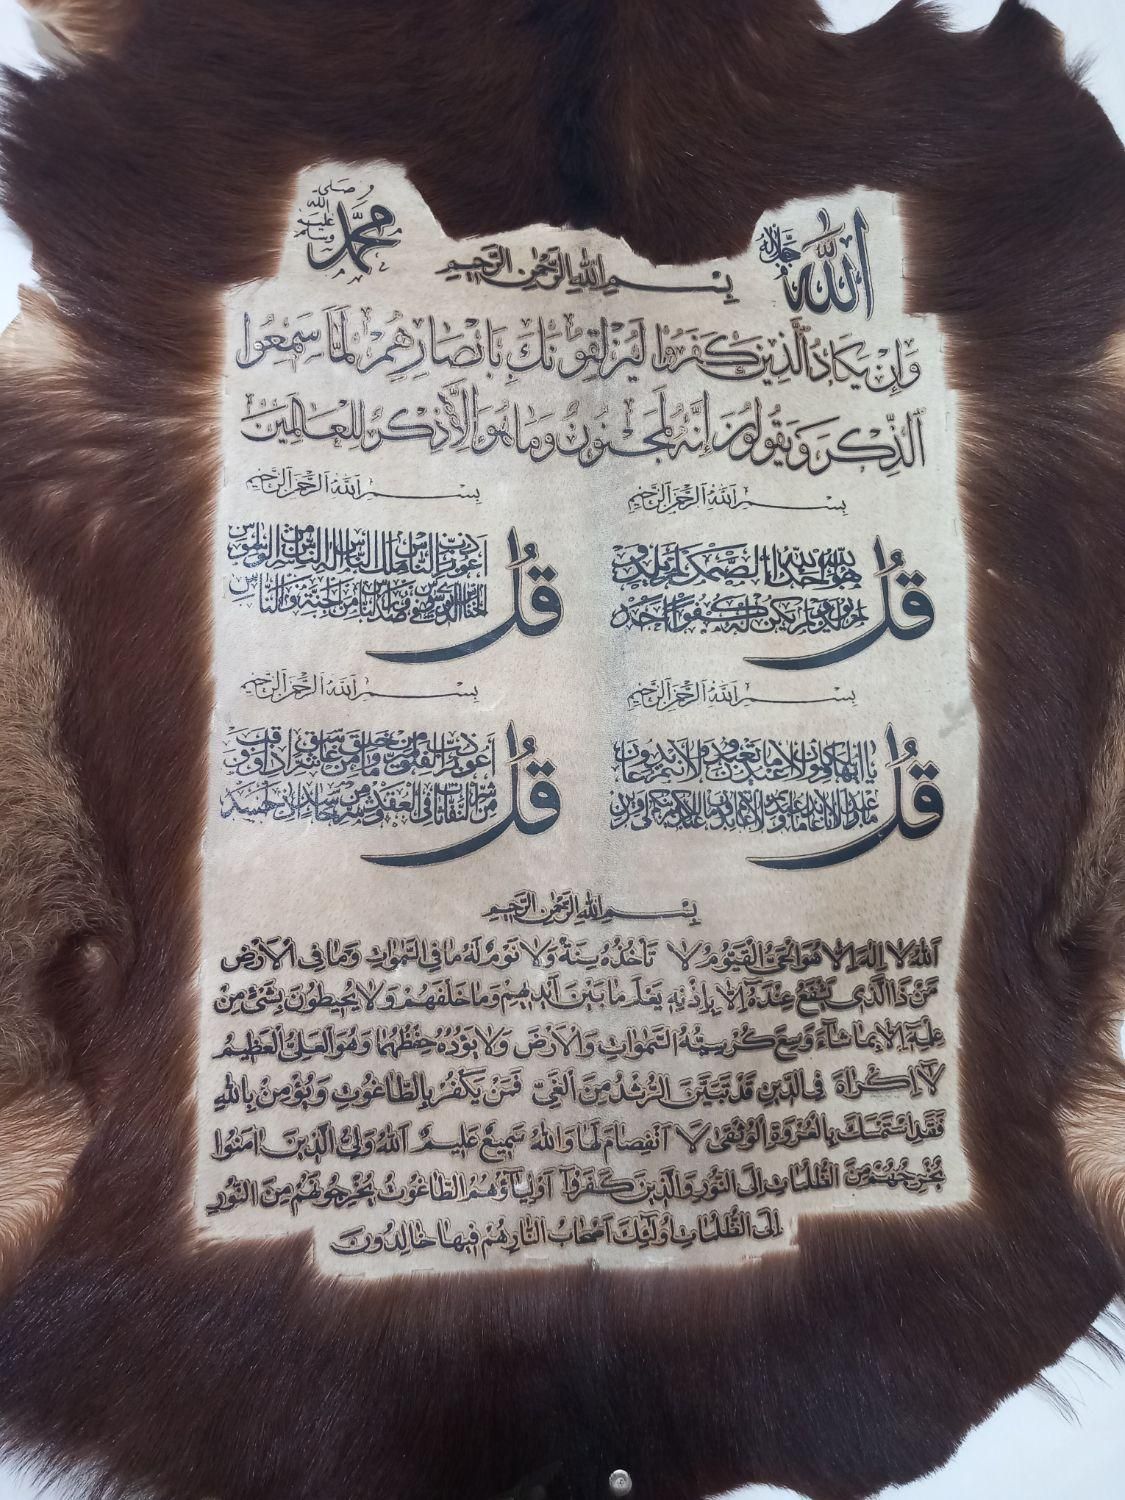 الله جل جلاله
محمد صلى الله عليه وسلم
بِسْمِ اللهِ الرَّحْمٰنِ الرَّحِيمِ
وَاِنْ يَكَادُ الَّذِينَ كَفَرُوا لَيُزْلِقُونَكَ بِاَبْصَارِهِمْ لَمَّا سَمِعُوا
الذِّكْرَ وَيَقُولُونَ اِنَّهُ لَمَجْنُونٌ وَمَا هُوَ اِلَّا ذِكْرٌ لِلْعَالَمِينَ
بسم الله الرحمن الرحيم
قُلْ هو الله احد الله الصمد لم يلد و
لم يولد ولم يكن له كفوا احد
بسم الله الرحمن الرحيم
قُلْ اعوذ برب الناس ملك الناس اله الناس من شر الوسواس
الخناس الذى يوسوس فى صدور الناس من الجنة والناس
بسم الله الرحمن الرحيم
قُلْ يا ايها الكافرون لا اعبد ما تعبدون ولا انتم عابدون
ما اعبد ولا انا عابد ما عبدتم ولا انتم عابدون ما اعبد لكم دينكم ولى دين
بسم الله الرحمن الرحيم
قُلْ اعوذ برب الفلق من شر ما خلق ومن شر غاسق اذا وقب
ومن شر النفاثات فى العقد ومن شر حاسد اذا حسد
بِسْمِ اللهِ الرَّحْمٰنِ الرَّحِيمِ
اَللهُ لَا اِلٰهَ اِلَّا هُوَ الْحَيُّ الْقَيُّومُ لَا تَأْخُذُهُ سِنَةٌ وَلَا نَوْمٌ لَهُ مَا فِي السَّمٰوَاتِ وَمَا فِي الْاَرْضِ
مَنْ ذَا الَّذِي يَشْفَعُ عِنْدَهُ اِلَّا بِاِذْنِهِ يَعْلَمُ مَا بَيْنَ اَيْدِيهِمْ وَمَا خَلْفَهُمْ وَلَا يُحِيطُونَ بِشَيْءٍ مِنْ
عِلْمِهِ اِلَّا بِمَا شَاءَ وَسِعَ كُرْسِيُّهُ السَّمٰوَاتِ وَالْاَرْضَ وَلَا يَؤُدُهُ حِفْظُهُمَا وَهُوَ الْعَلِيُّ الْعَظِيمُ
لَا اِكْرَاهَ فِي الدِّينِ قَدْ تَبَيَّنَ الرُّشْدُ مِنَ الْغَيِّ فَمَنْ يَكْفُرْ بِالطَّاغُوتِ وَيُؤْمِنْ بِاللهِ
فَقَدِ اسْتَمْسَكَ بِالْعُرْوَةِ الْوُثْقٰى لَا انْفِصَامَ لَهَا وَاللهُ سَمِيعٌ عَلِيمٌ اَللهُ وَلِيُّ الَّذِينَ اٰمَنُوا
يُخْرِجُهُمْ مِنَ الظُّلُمَاتِ اِلَى النُّورِ وَالَّذِينَ كَفَرُوا اَوْلِيَاؤُهُمُ الطَّاغُوتُ يُخْرِجُونَهُمْ مِنَ النُّورِ
اِلَى الظُّلُمَاتِ اُولٰئِكَ اَصْحَابُ النَّارِ هُمْ فِيهَا خَالِدُونَ